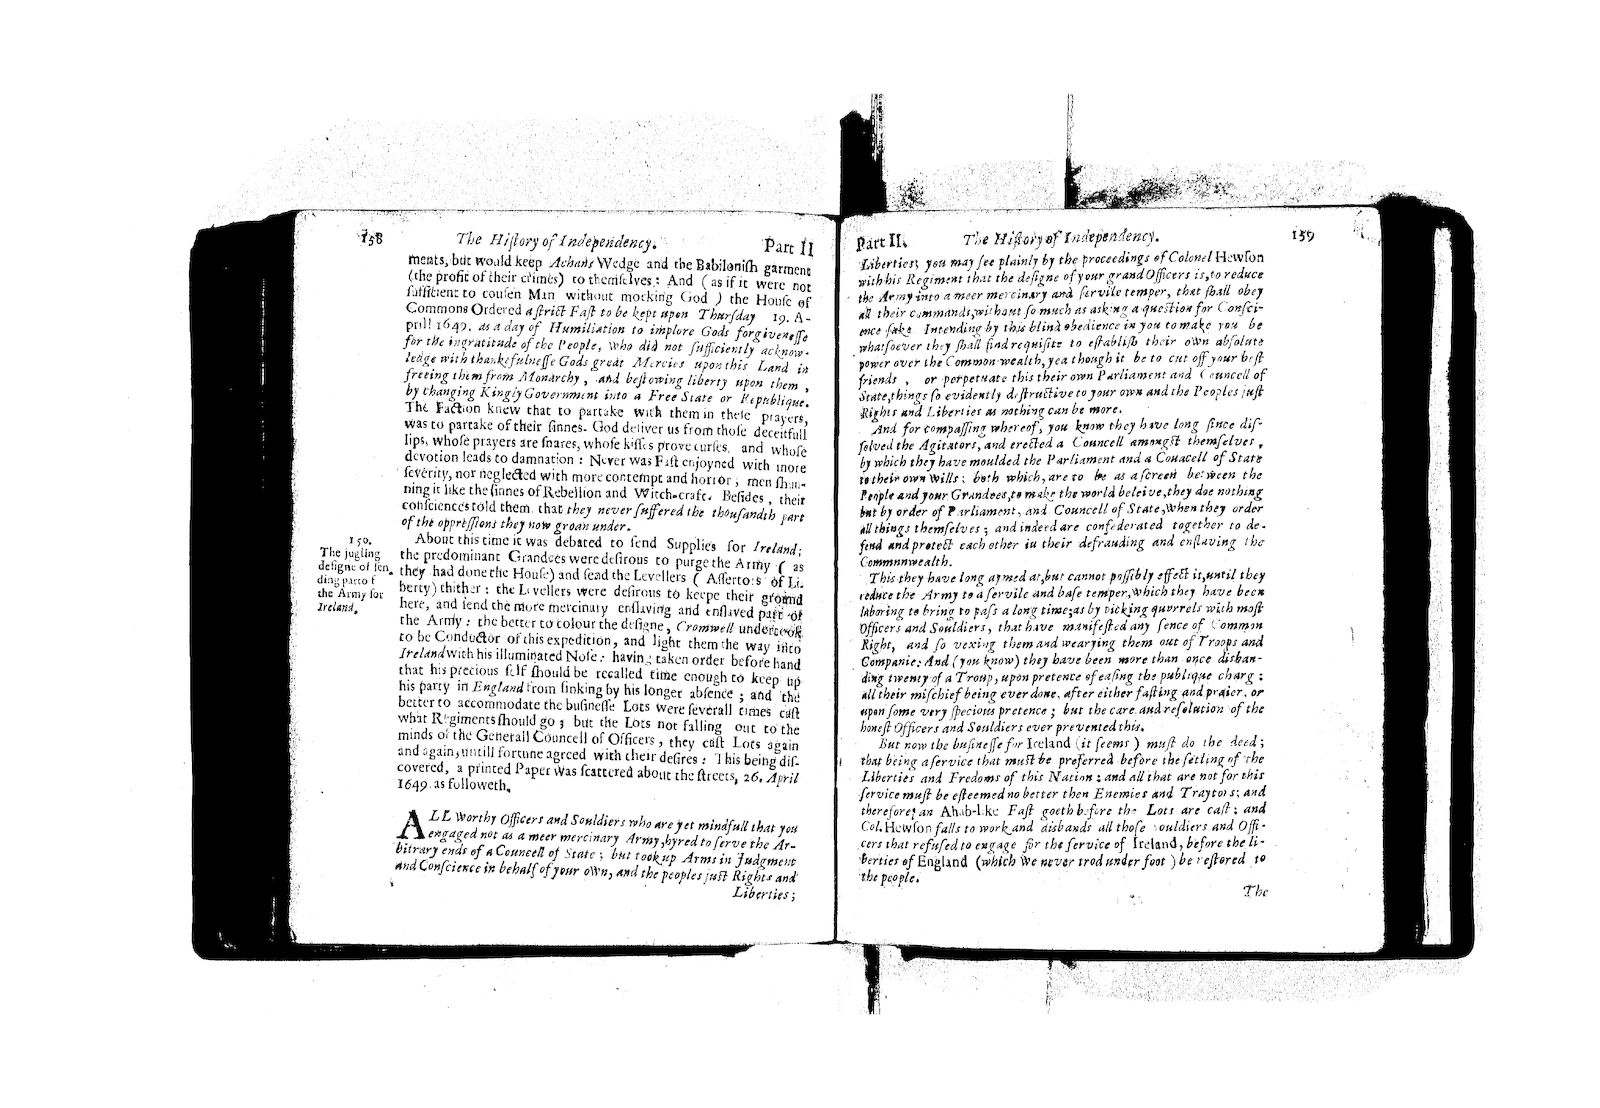 158 The History of Independency. Part II
ments, but would keep Achans Wedge and the Babilonish garment
(the profit of their crimes) to themselves: And (as if it were not
sufficient to cousen Man without mocking God) the House of
Commons Ordered a strict Fast to be kept upon Thursday 19. A-
prill 1649. as a day of Humiliation to implore Gods forgivenesse
for the ingratitude of the People, who did not sufficiently acknow-
ledge with thankefulnesse Gods great Mercies upon this Land in
freeing them from Monarchy, and bestowing liberty upon them,
by changing Kingly Government into a Free State or Republique.
The Faction knew that to partake with them in these prayers,
was to partake of their sinnes. God deliver us from those deceitfull
lips, whose prayers are snares, whose kisses prove curses, and whose
devotion leads to damnation: Never was Fast enjoyned with more
severity, nor neglected with more contempt and horror, men shun-
ning it like the sinnes of Rebellion and Witch-craft. Besides, their
consciences told them that they never suffered the thousandth part
of the oppressions they now groan under.
150.
The jugling
designe of sen-
ding part of
the Army for
Ireland.
About this time it was debated to send Supplies for Ireland;
the predominant Grandees were desirous to purge the Army (as
they had done the House) and send the Levellers (Assertors of Li-
berty) thither: the Levellers were desirous to keepe their ground
here, and send the more mercinary enslaving and enslaved part of
the Army: the better to colour the designe, Cromwell undertook
to be Conductor of this expedition, and light them the way into
Ireland with his illuminated Nose: having taken order before hand
that his precious self should be recalled time enough to keep up
his party in England from sinking by his longer absence; and the
better to accommodate the businesse Lots were severall times cast
what Regiments should go; but the Lots not falling out to the
minds of the Generall Councell of Officers, they cast Lots again
and again, untill fortune agreed with their desires: This being dis-
covered, a printed Paper was scattered about the streets, 26. April
1649. as followeth.
ALL Worthy Officers and Souldiers who are yet mindfull that you
engaged not as a meer mercinary Army, hyred to serve the Ar-
bitrary ends of a Councell of State; but took up Arms in Judgment
and Conscience in behalf of your own, and the peoples just Rights and
Liberties;
Part II. The History of Independency. 159
Liberties; you may see plainly by the proceedings of Colonel Hewson
with his Regiment that the designe of your grand Officers is, to reduce
the Army into a meer mercinary and servile temper, that shall obey
all their commands, without so much as asking a question for Consci-
ence sake Intending by this blind obedience in you to make you be
whatsoever they shall find requisite to establish their own absolute
power over the Common-wealth, yea though it be to cut off your best
friends, or perpetuate this their own Parliament and Councell of
State, things so evidently destructive to your own and the Peoples just
Rights and Liberties as nothing can be more.
And for compassing whereof, you know they have long since dis-
solved the Agitators, and erected a Councell amongst themselves,
by which they have moulded the Parliament and a Councell of State
to their own Wills; both which, are to be as a screen between the
People and your Grandees, to make the world beleive, they doe nothing
but by order of Parliament, and Councell of State, when they order
all things themselves; and indeed are confederated together to de-
fend and protect each other in their defrauding and enslaving the
Commnnwealth.
This they have long aymed at, but cannot possibly effect it, until they
reduce the Army to a servile and base temper, which they have been
laboring to bring to pass a long time; as by picking quurrels with most
Officers and Souldiers, that have manifested any sence of Common
Right, and so vexing them and wearying them out of Troops and
Companie: And (you know) they have been more than once disban-
ding twenty of a Troup, upon pretence of easing the publique charg:
all their mischief being ever done, after either fasting and praier, or
upon some very specious pretence; but the care and resolution of the
honest Officers and Souldiers ever prevented this.
But now the businesse for Ireland (it seems) must do the deed;
that being a service that must be preferred before the setling of the
Liberties and Fredoms of this Nation: and all that are not for this
service must be esteemed no better then Enemies and Traytors; and
therefore, an Ahab-like Fast goeth before the Lots are cast; and
Col. Hewson falls to work and disbands all those Souldiers and Offi-
cers that refused to engage for the service of Ireland, before the li-
berties of England (which we never trod under foot) be restored to
the people.
The